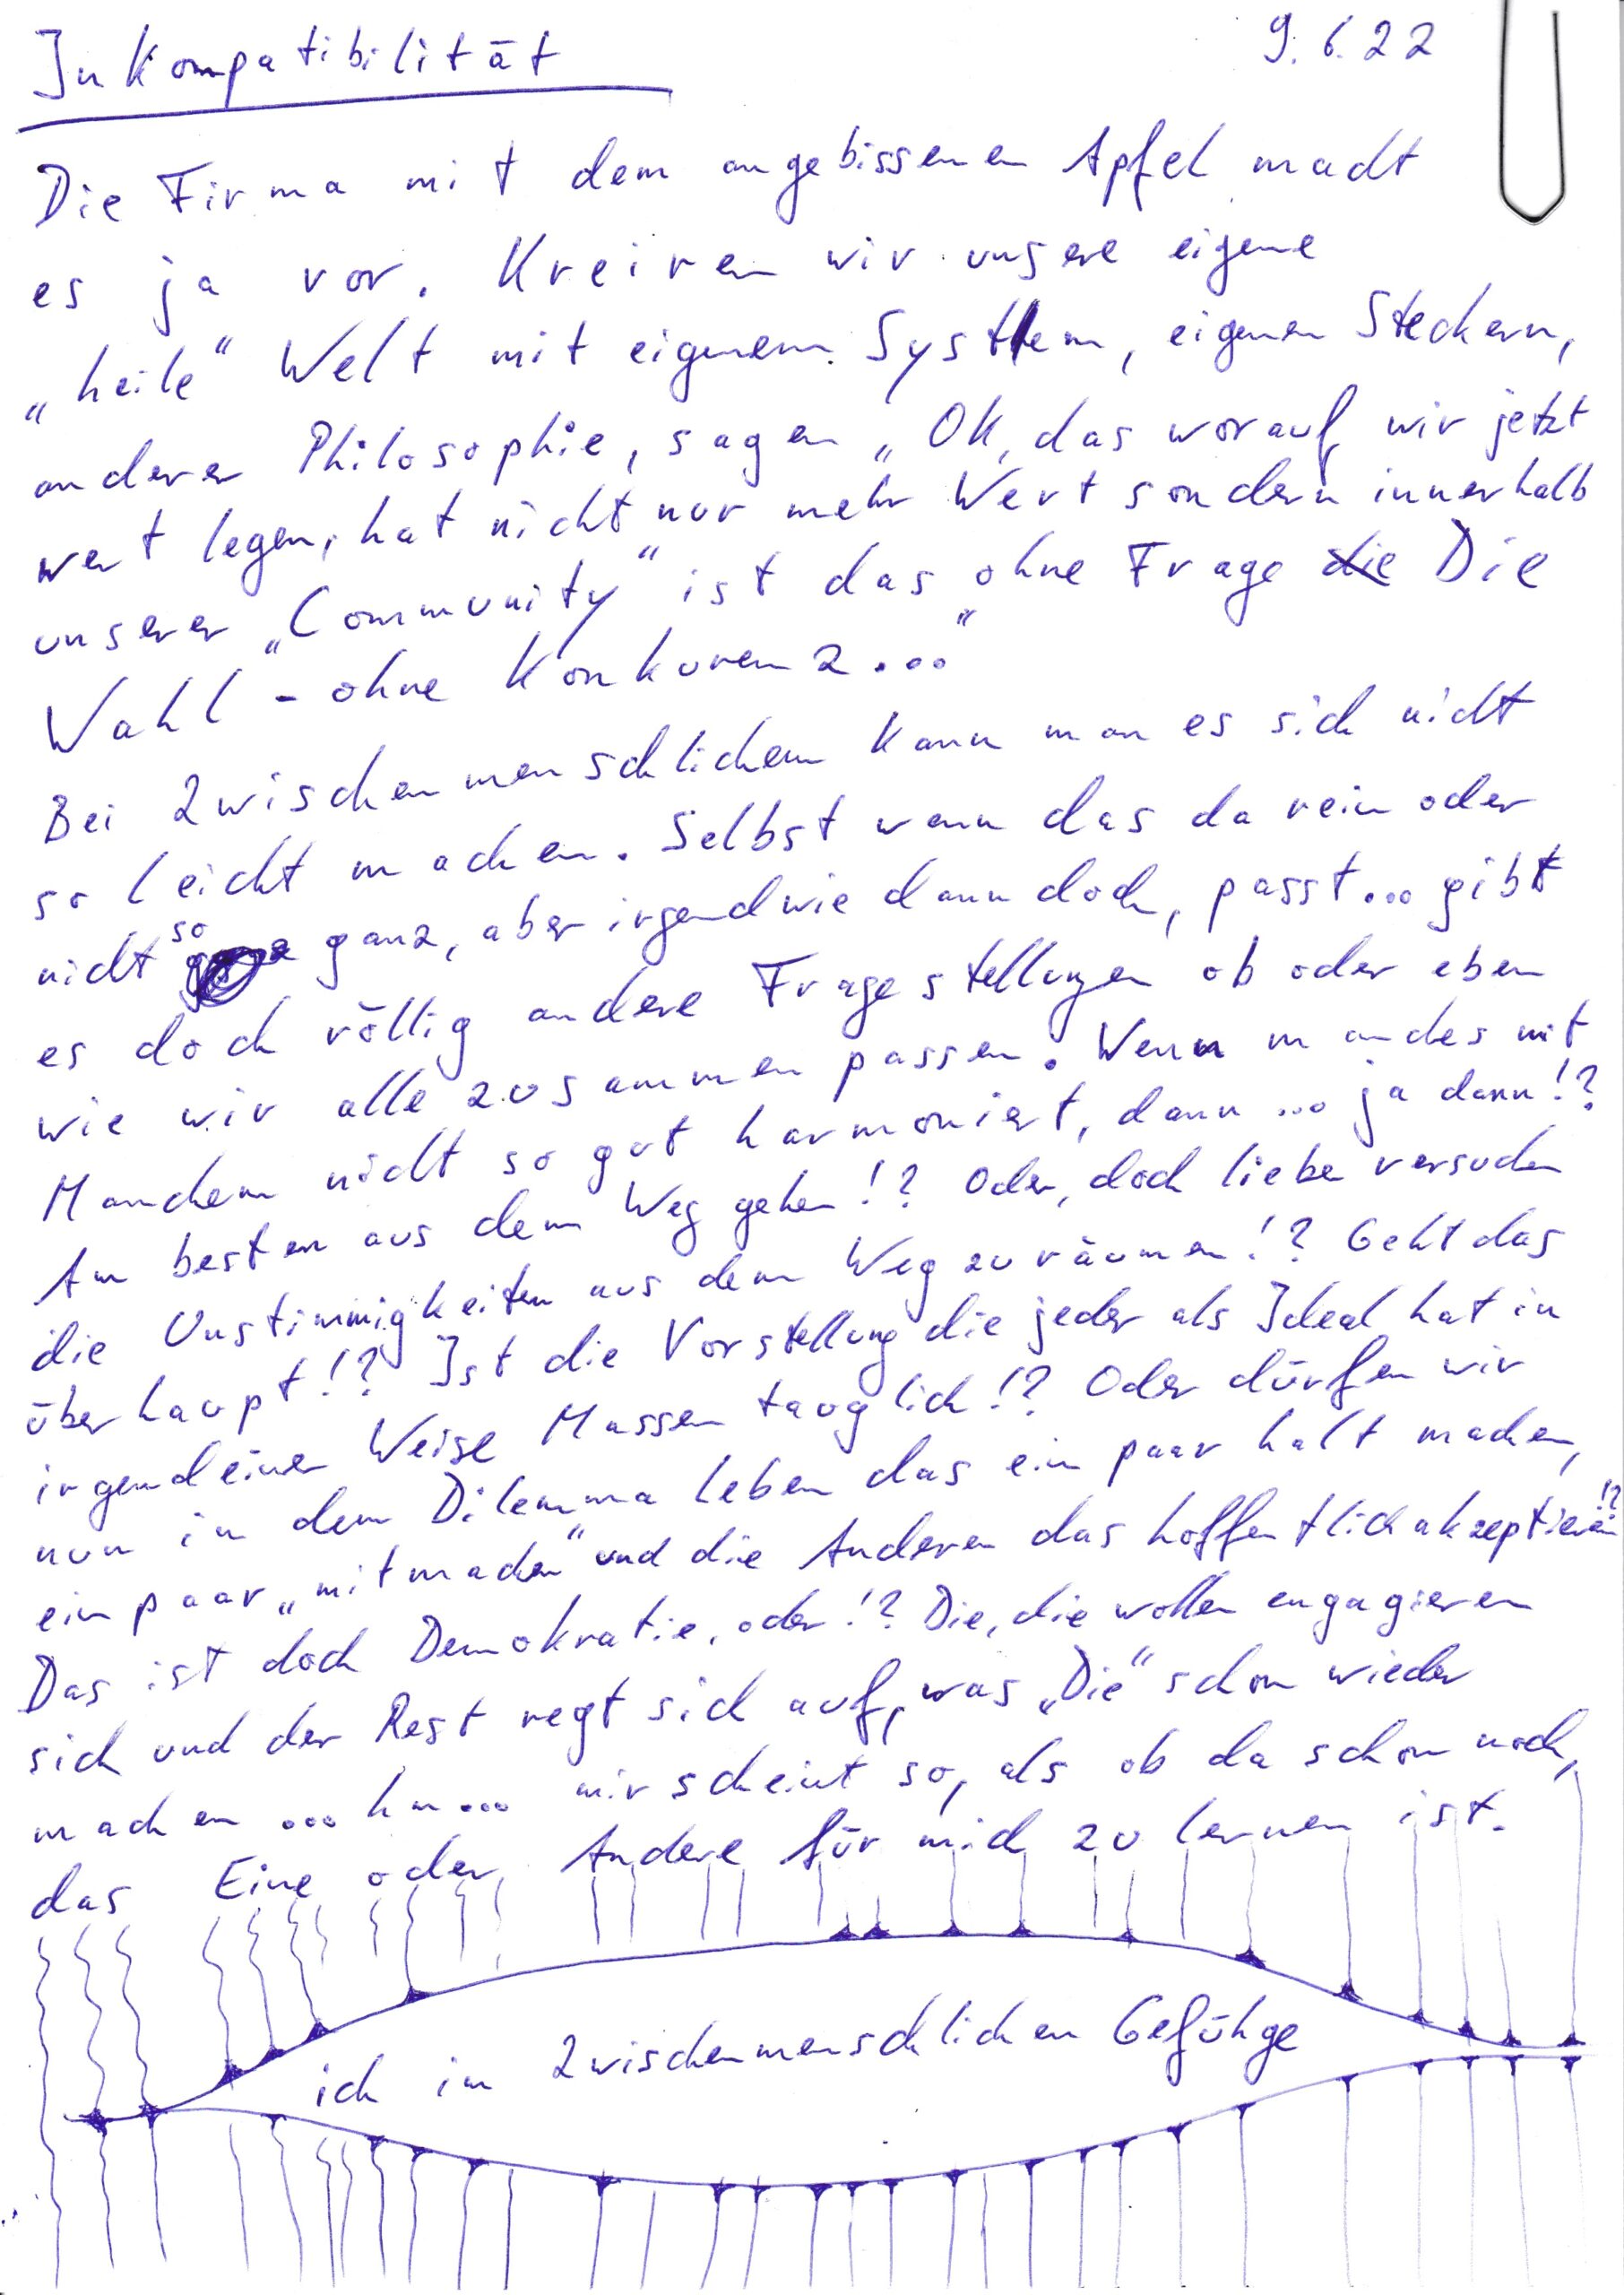 Inkompatibilität
9.6.22
Die Firma mit dem angebissenen Apfel macht
es ja vor. Kreiren wir unsere eigene
„heile" Welt mit eigenem System, eigenen Steckern,
anderer Philosophie, sagen „OK, das worauf wir jetzt
wert legen, hat nicht nur mehr Wert sondern innerhalb
unserer „Community" ist das „ohne Frage die Die
Wahl - ohne Konkurenz..."
Bei Zwischenmenschlichem kann man es sich nicht
so leicht machen. Selbst wenn das da rein oder
nicht so ganz, aber irgendwie dann doch, passt... gibt
es doch völlig andere Fragestellungen ob oder eben
wie wir alle zusammen passen. Wenn manches mit
Manchem nicht so gut harmoniert, dann ... ja dann!?
Am besten aus dem Weg gehen!? Oder, doch lieber versuchen
die Unstimmigkeiten aus dem Weg zu räumen!? Geht das
überhaupt!? Ist die Vorstellung die jeder als Ideal hat in
irgendeiner Weise Massen tauglich!? Oder dürfen wir
nun in dem Dilemma leben das ein paar halt machen,
ein paar „mitmachen" und die Anderen das hoffentlich akzeptieren!?
Das ist doch Demokratie, oder!? Die, die wollen engagieren
sich und der Rest regt sich auf, was „Die" schon wieder
machen ... hm... mir scheint so, als ob da schon noch,
das Eine oder Andere für mich zu lernen ist.
ich im Zwischenmenschlichen Gefühge